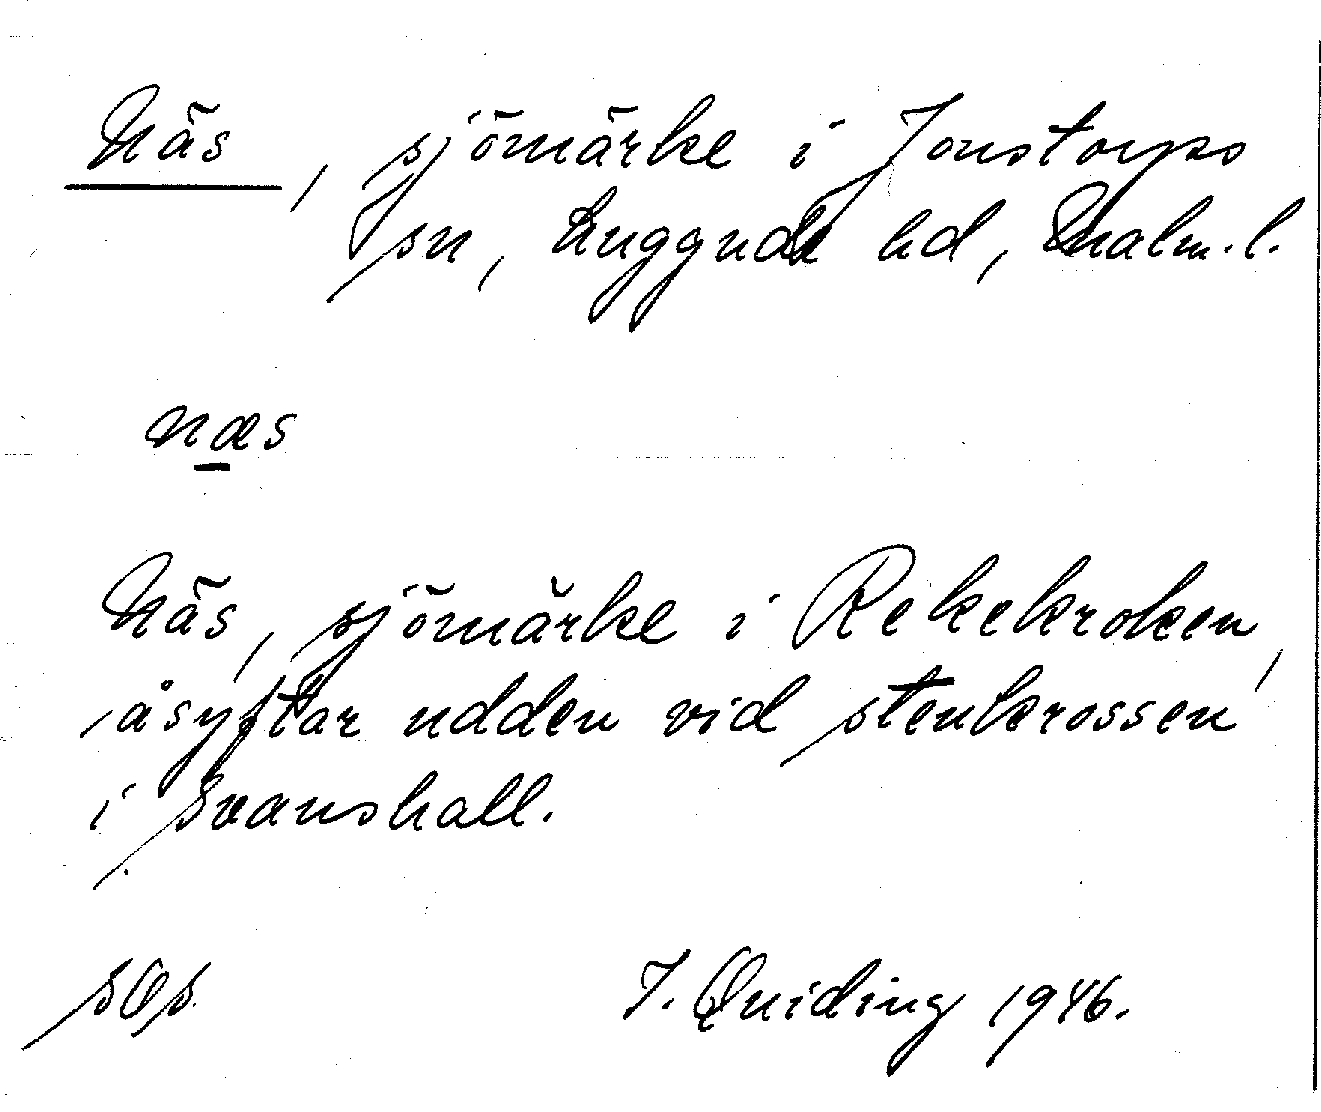 Näs, sjömärke i Jonstorps
sn, Luggude hd, Malm.l.
næs
Näs, sjömärke i Rekekroken,
åsyftar udden vid stenkrossen
i Svanshall.
sOs. I. Quiding 1946.